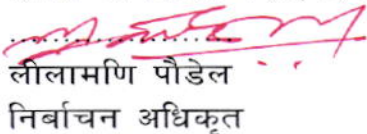 ....................
लीलामणि पौडेल
निर्वाचन अधिकृत